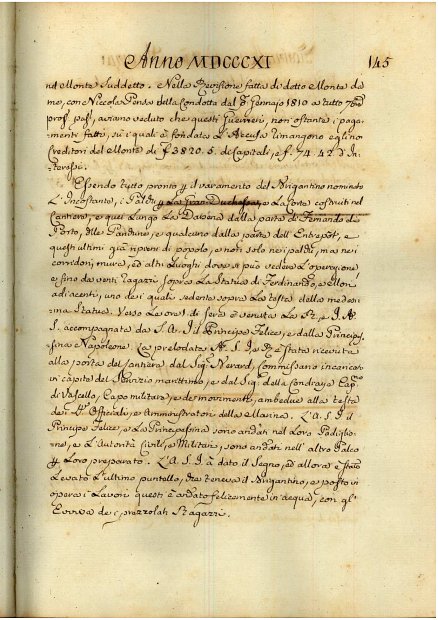 Anno MDCCCXI
145
nel Monte suddetto. Nella Revisione fatta di detto Monte da
me, con Niccola Pensa della Condotta dal Gennajo 1810 a tutto
pros. pas., aviamo veduto che questi Guerrieri, non ostante i paga-
menti fatti, su i quali è fondata l'Accusa rimangono eglino
Creditori del Monte di f 3820.5. di Capitali, e f. 74.42 d'In-
teressi.
Essendo tutto pronto p il varamento del Brigantino nominato
L'Incostante, i Palchi p La Gran Duchessa, e La Corte costruiti nel
Cantiere, e quei Lungo La Darsena dalla parte di Fernando del
Porto, delle Pandure, e qualcuno dalla parte dell'Entrepot, e
questi ultimi già ripieni di popolo, e non solo nei palchi, ma nei
corridori, mura, ed altri Luoghi dove si può vedere L'operazione
e fino da venti Ragazzi sopra La Statua di Ferdinando, e Mori
adiacenti, uno dei quali sedente sopra La testa della medesi-
ma Statua. Verso Le ore 5. di sera è venuta La S. I. A.
S. accompagnata da S. A. I. il Principe Felice, e dalla Principes-
sina Napoleone. La prelodata A. S. I. e R. è stata ricevuta
alla porta del Cantiere dal Sig. Nerard, Commissario incaricato
in capite del Servizio marittimo, e dal Sig. della Condraye Cap.
di Vascello, Capo militare, e dei movimenti, ambedue alla testa
dei Officiali, e Amministratori della Marina. L'A. S. I. il
Principe Felice, e La Principessina sono andati nel Loro Padiglio-
ne, e L'Autorità Civili, e Militari, sono andati nell'altro Palco
p Loro preparato. L'A. S. I. à dato il Segno, ed allora è stato
Levato L'ultimo puntello, che teneva il Brigantino, e posto in
opera i Lavori questi è andato felicemente in acqua, con gl'
Evviva dei prezzolati Ragazzi.